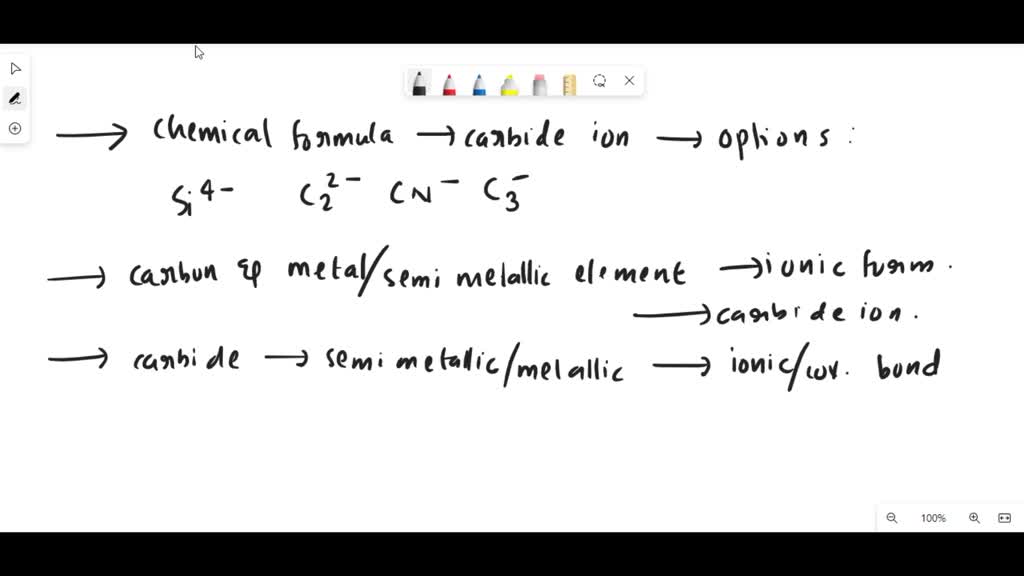 → chemical formula → carbide ion → options :
Si⁴⁻ C₂²⁻ CN⁻ C₃⁻
→ carbon & metal/semi metallic element → ionic form .
→ carbide ion .
→ carbide → semi metallic/metallic → ionic/cov. bond
100%